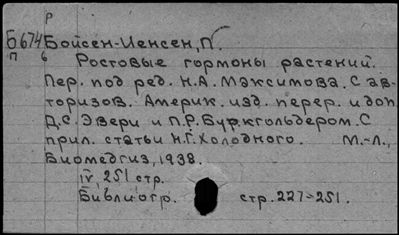 Р
Б674 Бойсен-Иенсен, П.
П б Ростовые гормоны растений.
Пер. под ред. Н.А. Максимова. С ав-
торизов. Америк. изд. перер. и доп.
Д.С. Эвери и П.Р. Буркгольдером. С
прил. статьи Н.Г. Холодного. М.-Л.,
Биомедгиз, 1938.
IV, 251 стр.
Библиогр. стр. 227-251.